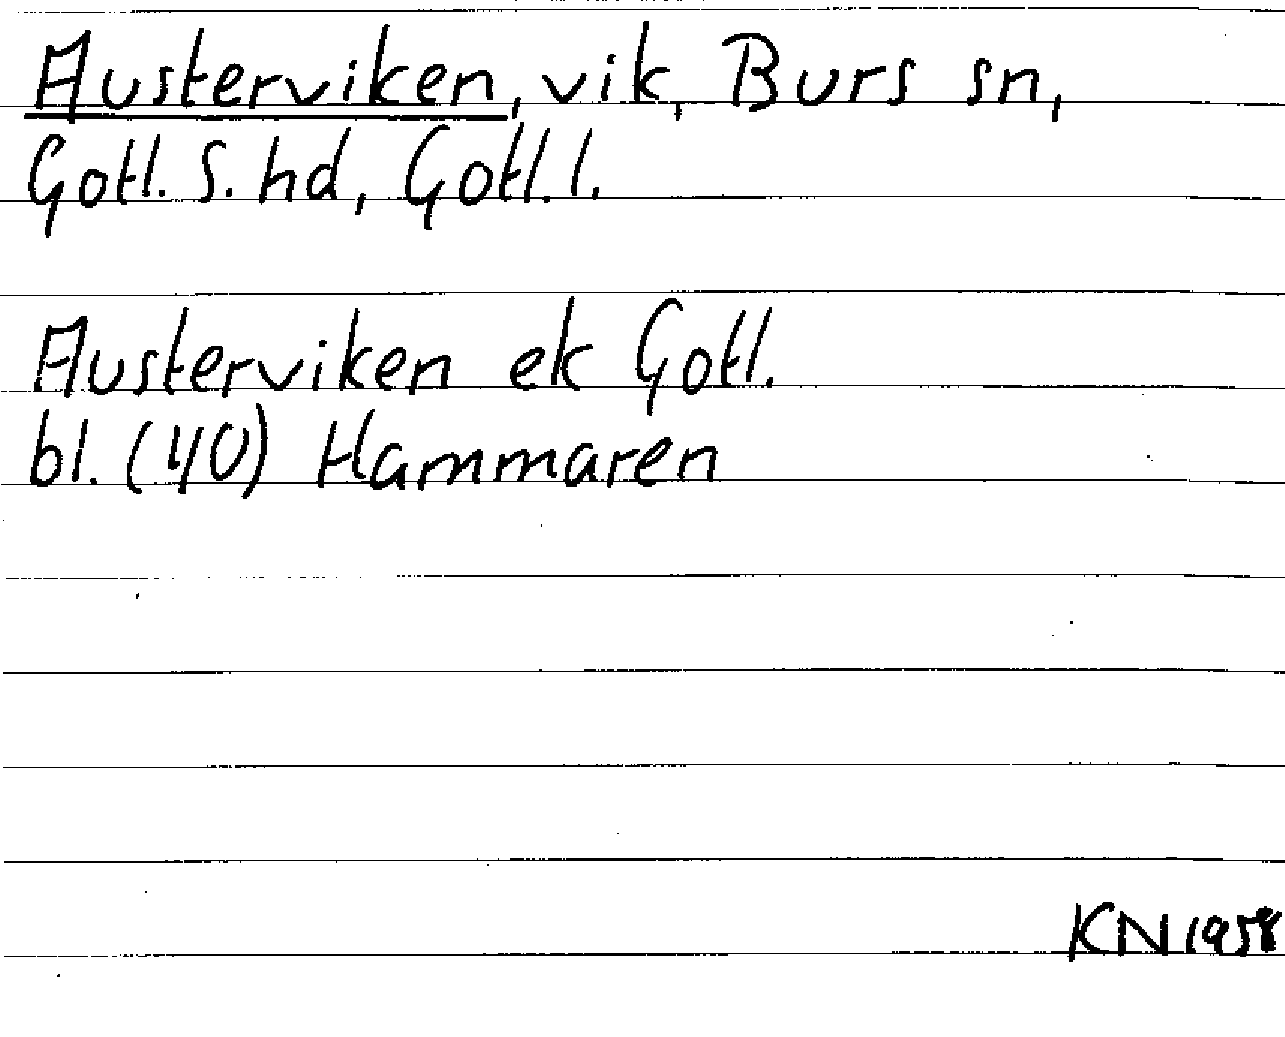 Austerviken, vik, Burs sn,
Gotl. S. hd, Gotl. l.
Austerviken ek Gotl.
bl. (40) Hammaren
KN 1958